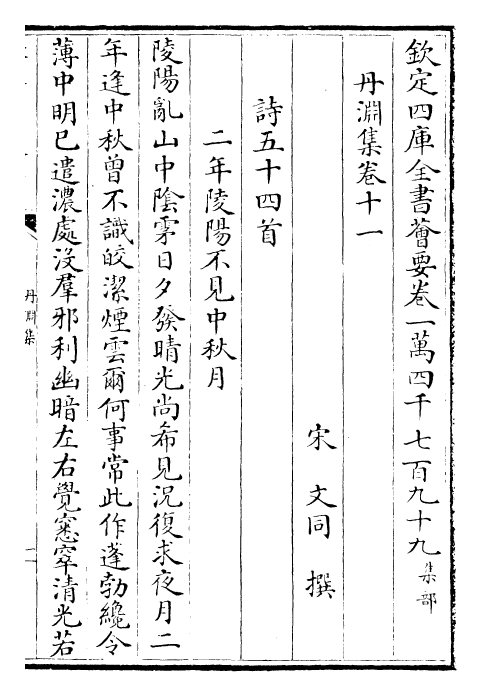 欽定四庫全書薈要卷一萬四千七百九十九集部
丹淵集卷十一
宋　文同　撰
詩五十四首
二年陵陽不見中秋月
陵陽亂山中陰雰日夕發晴光尚希見況復求夜月二
年逢中秋曾不識皎潔煙雲爾何事常此作蓬勃纔令
薄中明已遣濃處沒羣邪利幽暗左右覺窸窣清光若
丹淵集
一